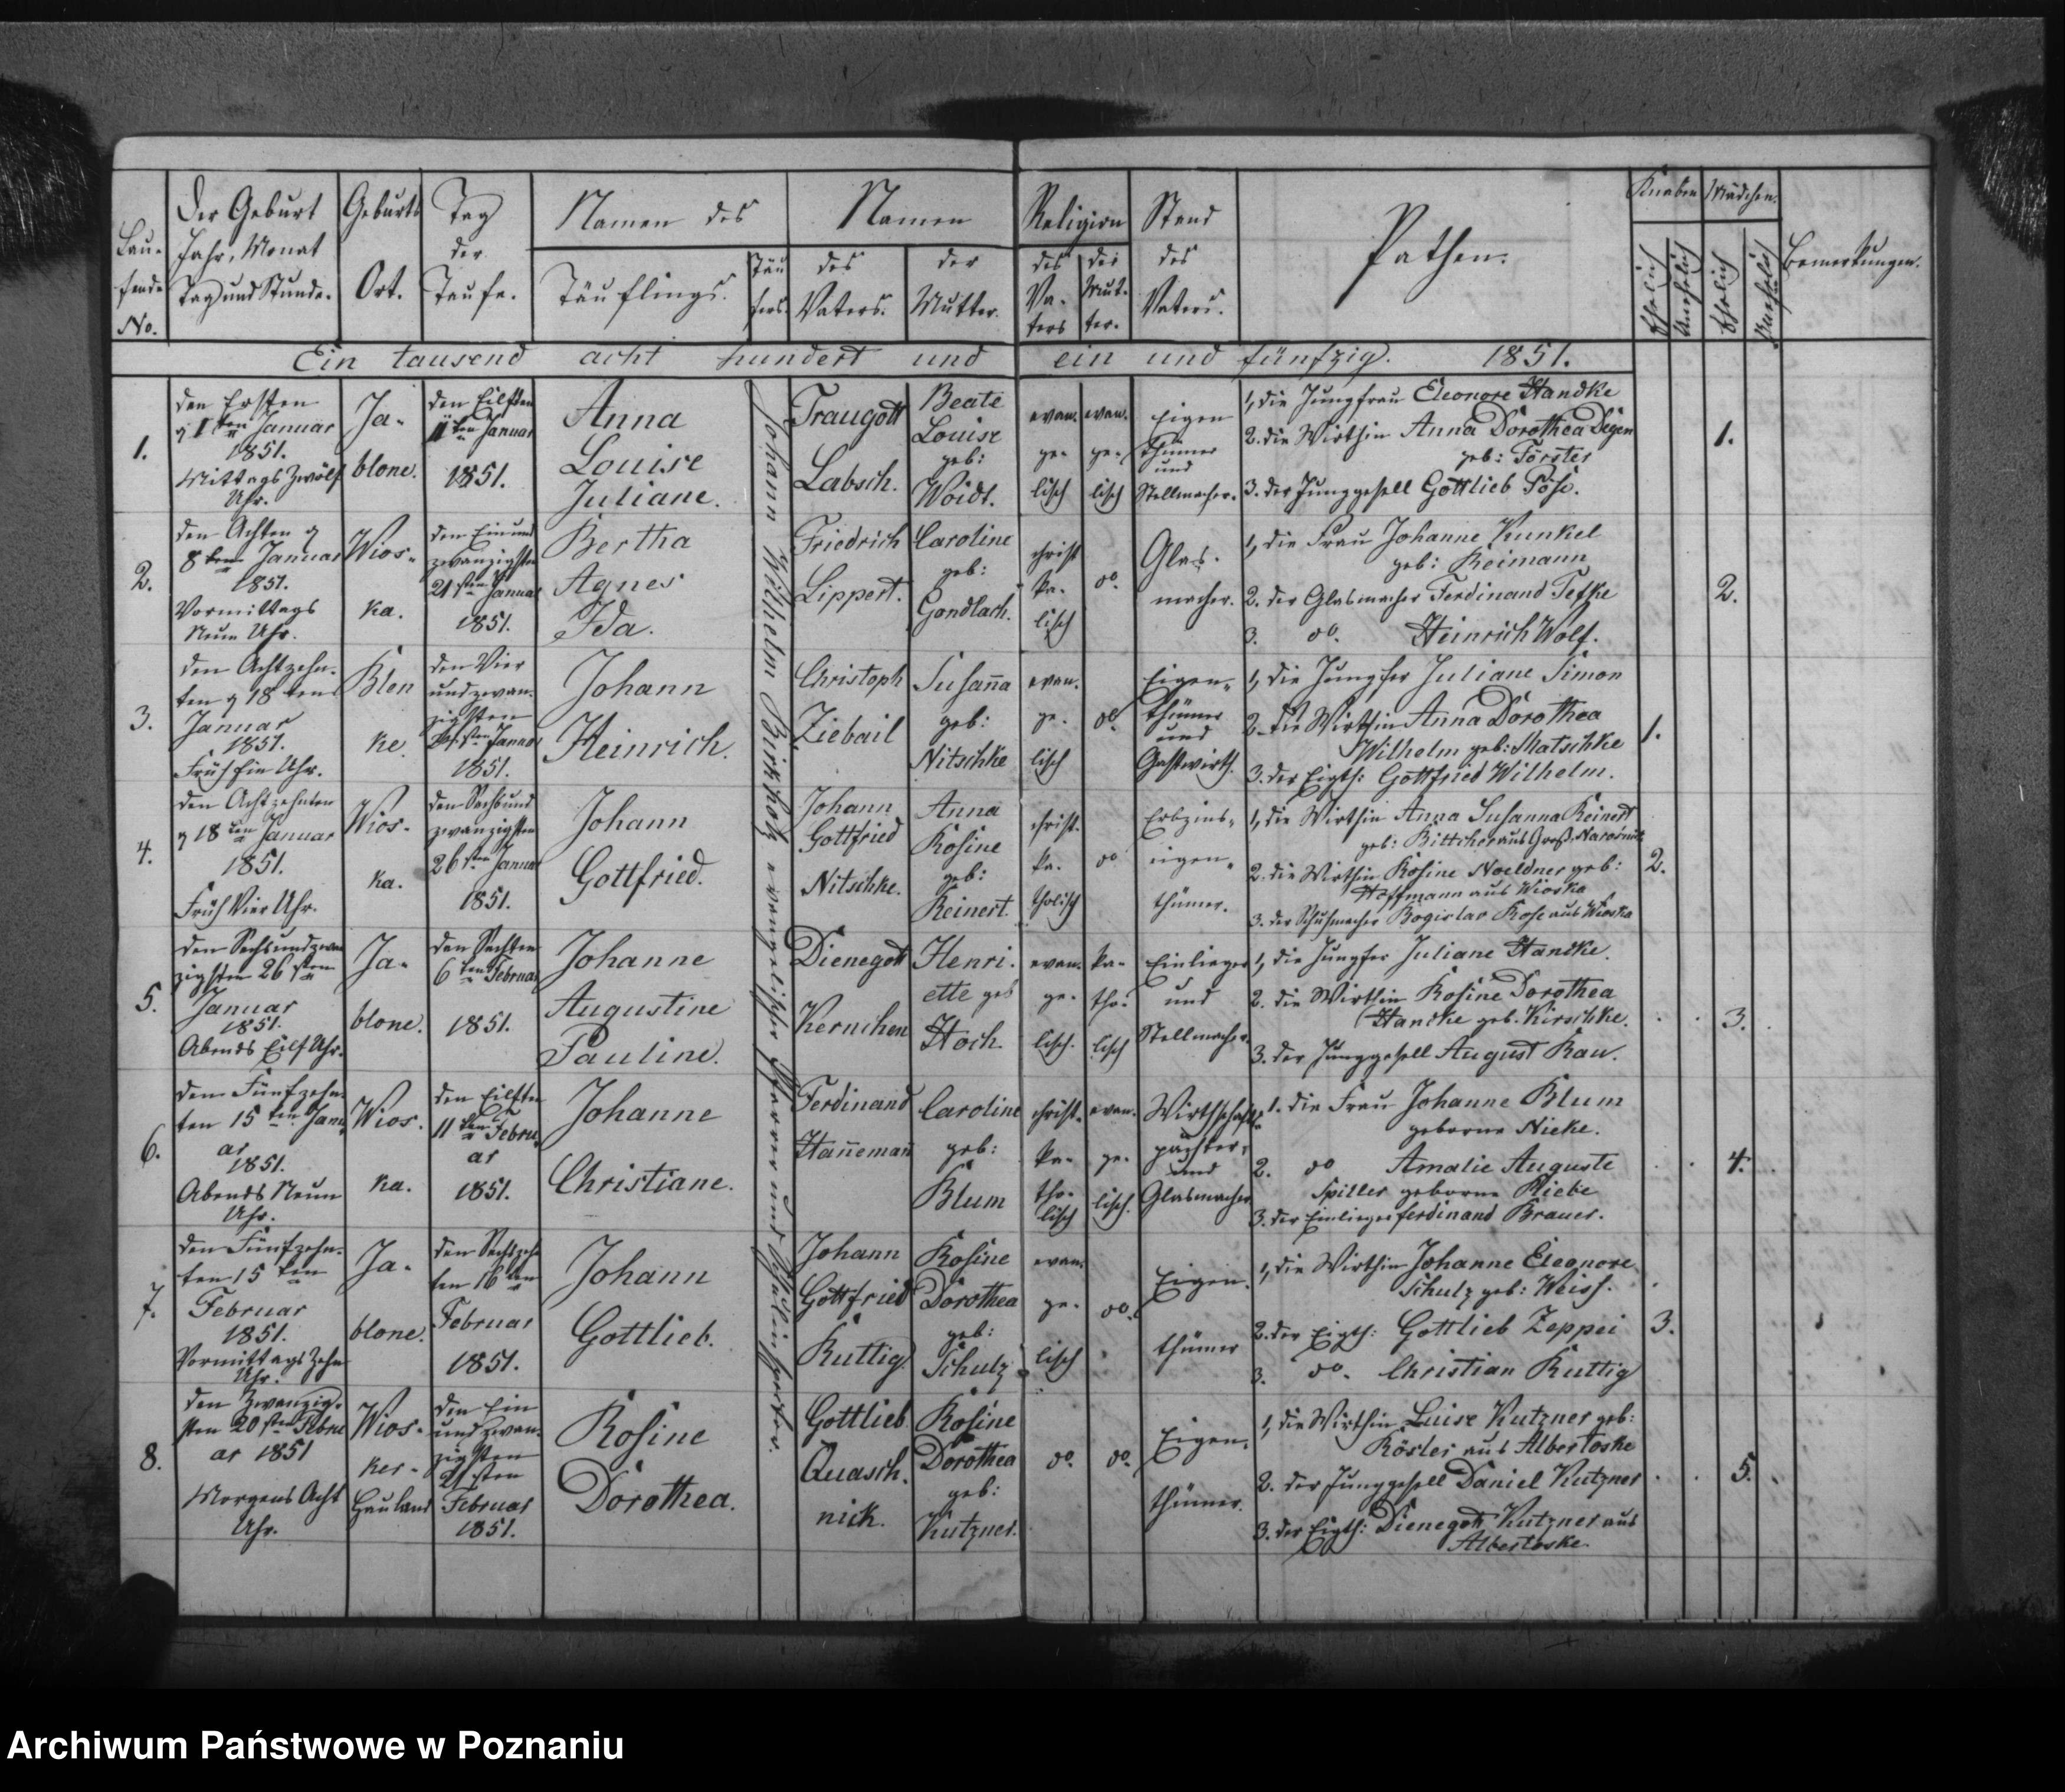 Lau-
fende
No.
Der Geburt
Jahr, Monat
Tag und Stunde.
Geburts
Ort.
Tag
der
Taufe.
Namen des
Täuflings.
Täu
fers.
Namen
des
Vaters.
der
Mutter.
Religion
des
Va-
ters
der
Mut-
ter.
Stand
des
Vaters.
Pathen.
Knaben
Ehelich
Unehelich
Mädchen.
Ehelich
Unehelich
Bemerkungen.
Ein tausend acht hundert und ein und fünfzig. 1851.
Johann Wilhelm Birkholz evangelischer Pfarrer und
1.
den Ersten
1ten Januar
1851.
Mittags Zwölf
Uhr.
Ja-
blone.
den Eilften
11ten Januar
1851.
Anna
Louise
Juliane.
Traugott
Labsch.
Beate
Louise
geb:
Woidt.
evan.
ge-
lisch
evan.
ge-
lisch
Eigen
thümer
und
Stellmacher.
1, die Jungfrau Eleonore Handke
2. die Wirthin Anna Dorothea Degen
geb: Förster
3. der Junggesell Gottlieb
1.
2.
den Achten
8ten Januar
1851.
Vormittags
Neun Uhr.
Wios-
ka.
den Ein und
zwanzigsten
21sten Januar
1851.
Bertha
Agnes
Ida.
Friedrich
Lippert.
Caroline
geb:
Gondlach.
christ
ka-
lisch
do.
Glas-
macher.
1, die Frau Johanne Kunkel
geb: Reimann
2. der Glasmacher Ferdinand Tetke
3. do. Heinrich Wolf.
2.
3.
den Achtzehn-
ten 18ten
Januar
1851.
Früh Ein Uhr.
Blen
ke.
den Vier
und zwan-
zigsten
24sten Januar
1851.
Johann
Heinrich.
Christoph
Ziebail
Susana
geb:
Nitschke
evan.
ge-
lisch
do
Eigen-
thümer
und
Gastwirth.
1, die Jungfer Juliane Simon
2. die Wirthin Anna Dorothea
Wilhelm geb: Matschke
3. der Eigth: Gottfried Wilhelm.
1.
4.
den Achtzehnten
18ten Januar
1851.
Früh Vier Uhr.
Wios-
ka.
den Sechs und
zwanzigsten
26sten Januar
1851.
Johann
Gottfried.
Johann
Gottfried
Nitschke.
Anna
Rosine
geb:
Reinert.
christ-
ka-
tholisch
do
Erbzins-
eigen-
thümer.
1, die Wirthin Anna Susanna Reinert
geb: Bittcher aus Groß
2. die Wirthin Rosine Noeldner geb:
Hoffmann aus Wioska
3. der Schuhmacher Bogislav Rose aus Wioska
2.
5.
den Sechs und zwan
zigsten 26sten
Januar
1851.
Abends Eilf Uhr.
Ja-
blone.
den Sechsten
6ten Februar
1851.
Johanne
Augustine
Pauline.
Dienegott
Kernchen
Henri-
ette geb
Hoch.
evan.
ge-
lisch.
ka-
tho-
lisch
Einlieger
und
Stellmacher.
1, die Jungfer Juliane Hancke.
2. die Wirthin Rosine Dorothea
Hancke geb. Kirschke.
3. der Junggesell August Rau.
3.
6.
den Fünfzehn-
ten 15ten Janu
ar
1851.
Abends Neun
Uhr.
Wios-
ka.
den Eilften
11ten Febru
ar
1851.
Johanne
Christiane.
Ferdinand
Haneman
Caroline
geb:
Blum
christ-
ka-
tho-
lisch
evan-
ge-
lisch.
Wirthschafts
pächter
und
Glasmacher
1. die Frau Johanne Blum
geborne Nieke.
2. do Amalie Auguste
Spiller geborne Riebe
3. der Einlieger Ferdinand Brauer.
4.
7.
den Fünfzehn-
ten 15ten
Februar
1851.
Vormittags Zehn
Uhr.
Ja-
blone.
den Sechszehn
ten 16ten
Februar
1851.
Johann
Gottlieb.
Johann
Gottfried
Ruttig
Rosine
Dorothea
geb:
Schulz
evan-
ge-
lisch
do.
Eigen-
thümer
1, die Wirthin Johanne Eleonore
Schulz geb: Weiss.
2. der Eigth: Gottlieb Zeppei
3. do. Christian Ruttig
3.
8.
den Zwanzig-
sten 20sten Febru
ar 1851
Morgens Acht
Uhr.
Wios-
ker-
Hauland
den Ein
und zwan-
zigsten
21sten
Februar
1851.
Rosine
Dorothea.
Gottlieb
Quasch-
nick.
Rosine
Dorothea
geb:
Kutzner.
do.
do.
Eigen-
thümer.
1, die Wirthin Luise Kutzner geb:
Rösler aus Albertoske
2. der Junggesell Daniel Kutzner
3. der Eigth: Dienegott Kutzner aus
Albertoske.
5.
Archiwum Państwowe w Poznaniu